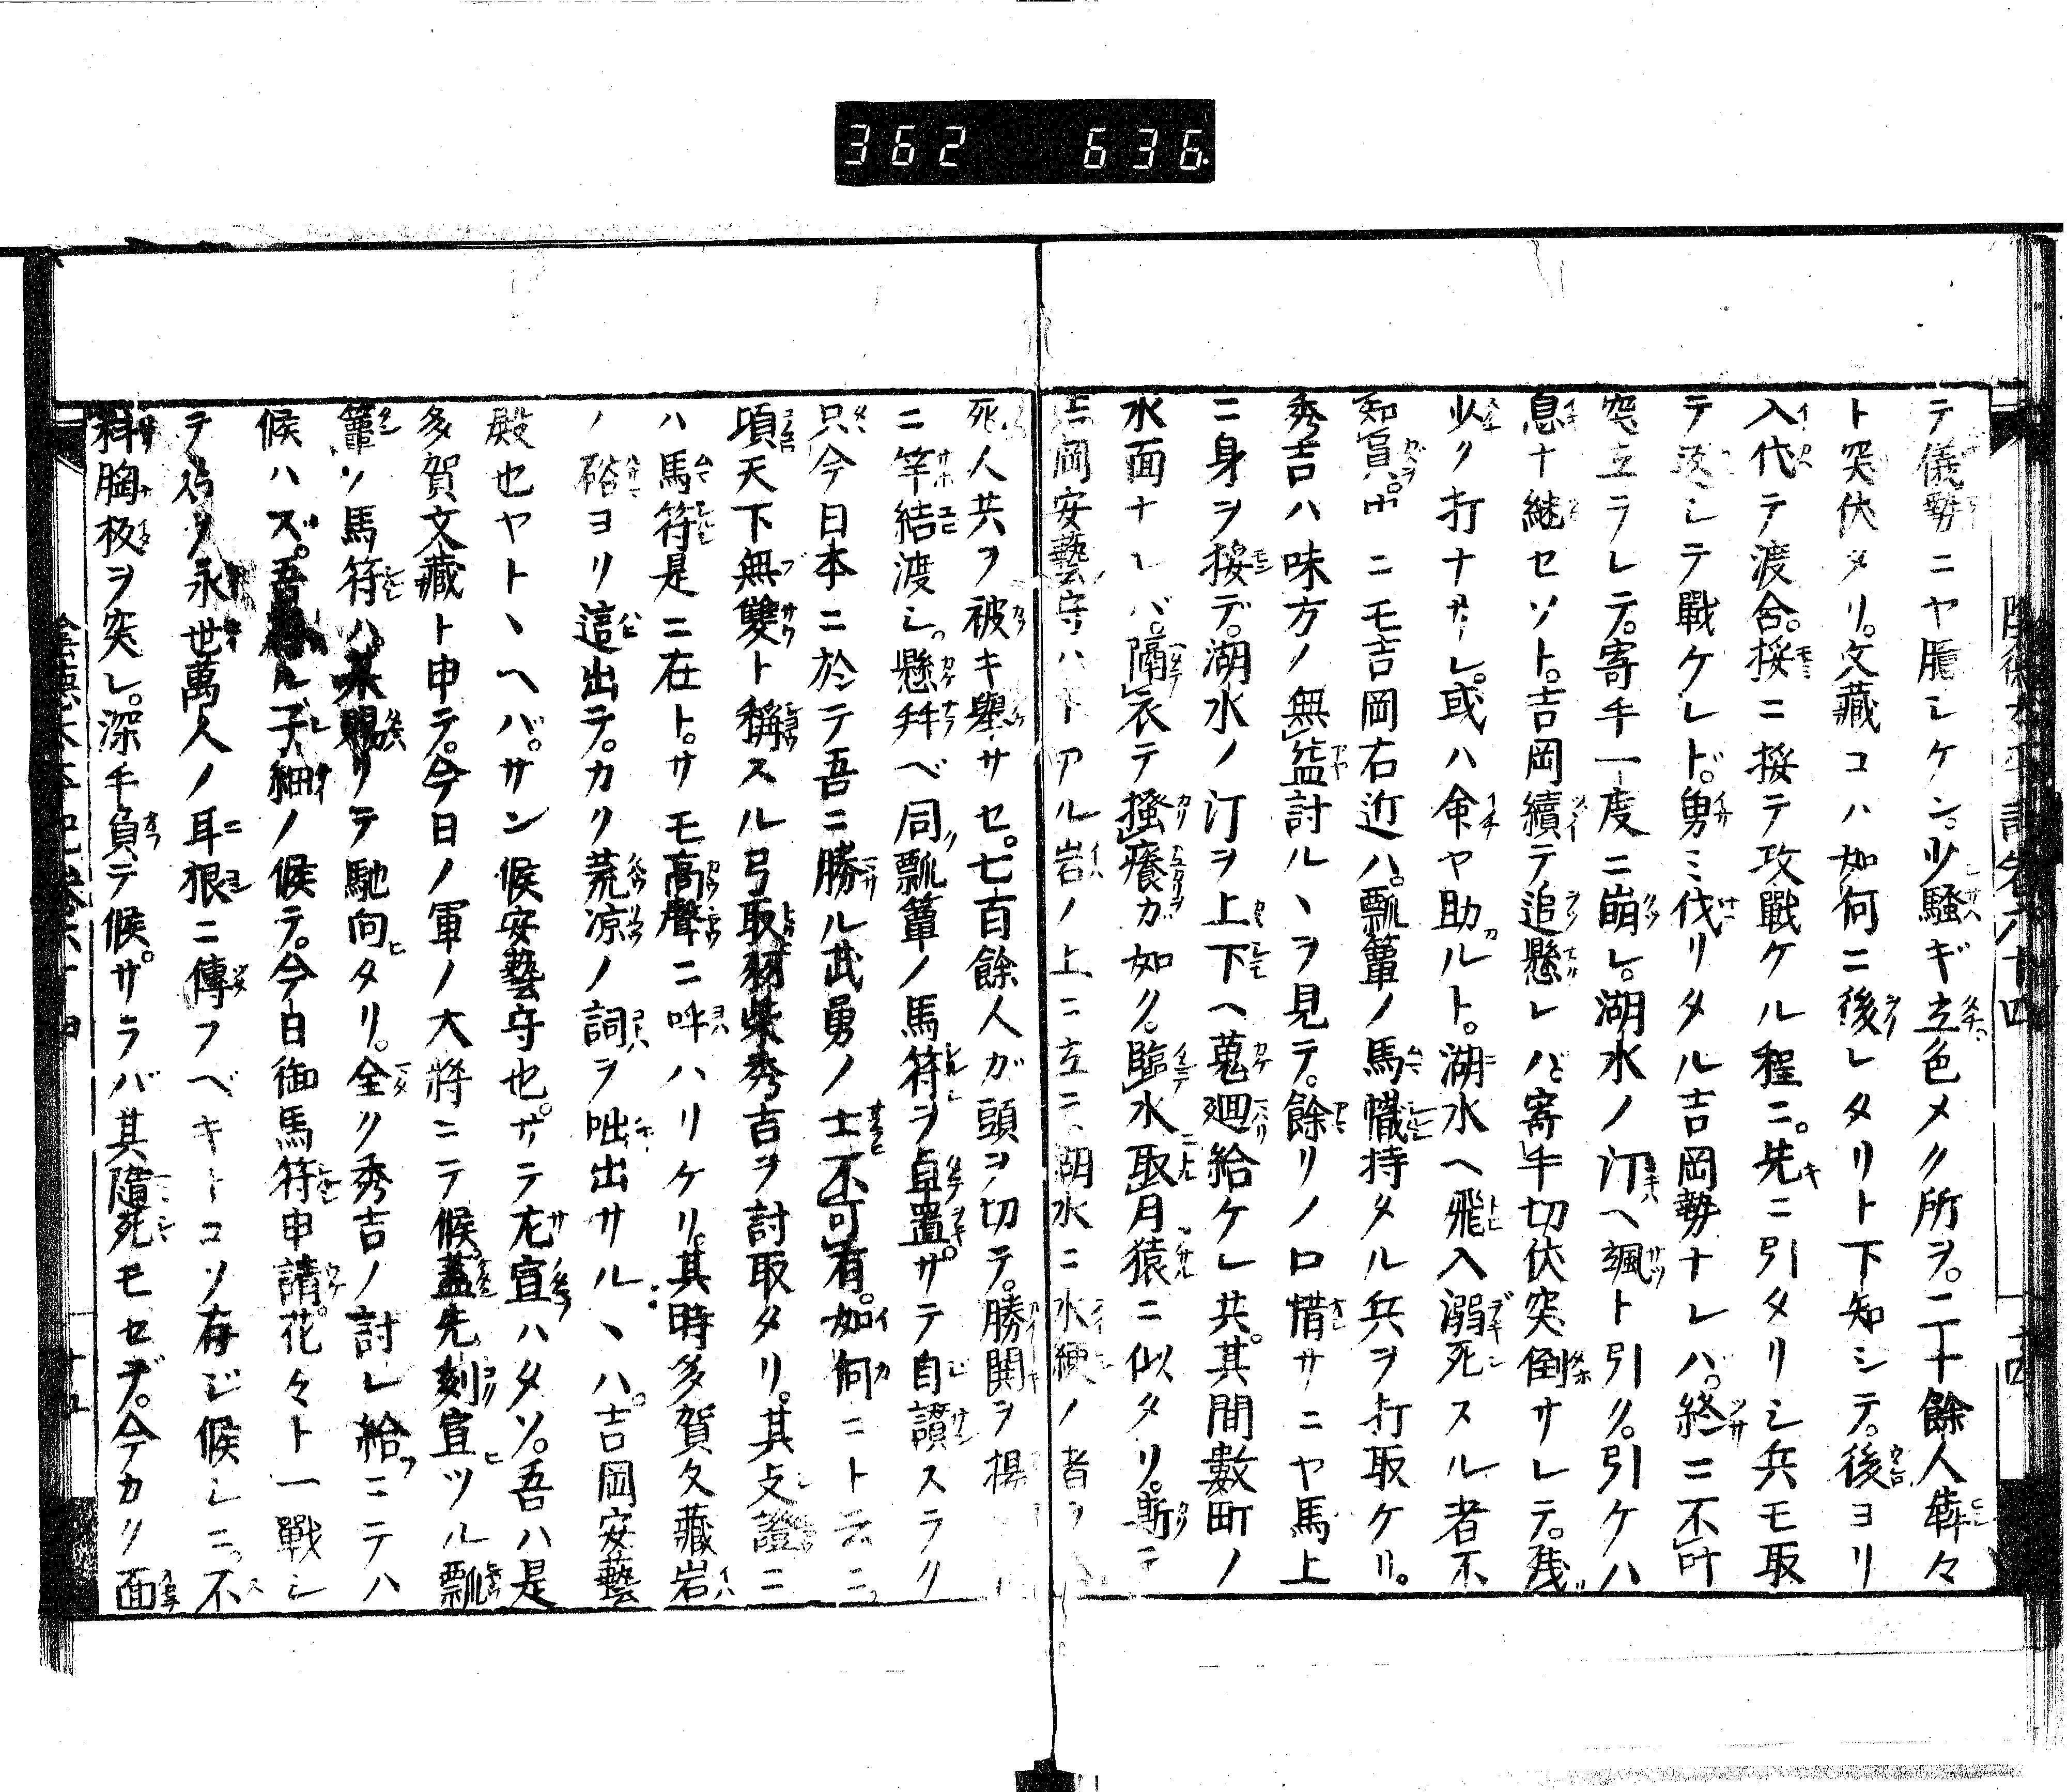 362 636
テ儀勢ニヤ臆シケン。少騒ギ立色メク所ヲ。二十餘人犇々
ト突伏タリ。文藏コハ如何ニ後レタリト下知シテ。後ヨリ
入代テ渡合。挼ニ挼テ攻戰ケル程ニ。先ニ引タリシ兵モ取
テ返シテ戰ケレド。勇ミ伐リタル吉岡勢ナレバ。終ニ不叶
突立ラレテ。寄手一度ニ崩レ。湖水ノ汀ヘ颯ト引ク。引ケハ
息ナ継セソト。吉岡續テ追懸レバ。寄手切伏突倒サレテ。残
少ク打ナサレ。或ハ命ヤ助ルト。湖水ヘ飛入溺死スル者不
知員。中ニモ吉岡右近ハ。瓢簞ノ馬幟持タル兵ヲ打取ケリ。
秀吉ハ味方ノ無益討ルヽヲ見テ。餘リノ口惜サニヤ馬上
ニ身ヲ挼デ。湖水ノ汀ヲ上下ヘ蒐廻給ケレ共。其間數町ノ
水面ナレバ。隔衣テ搔癢カ如ク。臨水取月猿ニ似タリ。斯テ
吉岡安藝守ハ トアル岩ノ上ニ立テ。湖水ニ水練ノ者ヲ入
死人共ヲ被キ擧サセ。七百餘人が頭ヲ切テ。勝閧ヲ揚
ニ竿結渡シ。懸幷ベ同瓢簞ノ馬符ヲ卓置。サテ自讃スラク
只今日本ニ於テ吾ニ勝ル武勇ノ士不可有。如何ニト云ニ。
項天下無雙ト稱スル弓取羽柴秀吉ヲ討取タリ。其支證ニ
ハ馬符是ニ在ト。サモ高聲ニ呼ハリケリ。其時多賀文藏岩
ノ硲ヨリ這出テ。カク荒凉ノ詞ヲ咄出サルヽハ。吉岡安藝
殿也ヤトヽヘバ。サン候安藝守也。サテ左宣ハタソ。吾ハ是
多賀文藏ト申テ。今日ノ軍ノ大將ニテ候。蓋先刻宣ツル瓢
簞ソ馬符ハ某賜リテ馳向タリ。全ク秀吉ノ討レ給ニテハ
候ハズ。吾 ル子細ノ候テ。今日御馬符申請。花々ト一戰シ
テ 永世萬人ノ耳根ニ傳フベキトコソ存ジ候シニ。不
料胸板ヲ突レ。深手負テ候。サラバ其隨死モセデ。今カク面